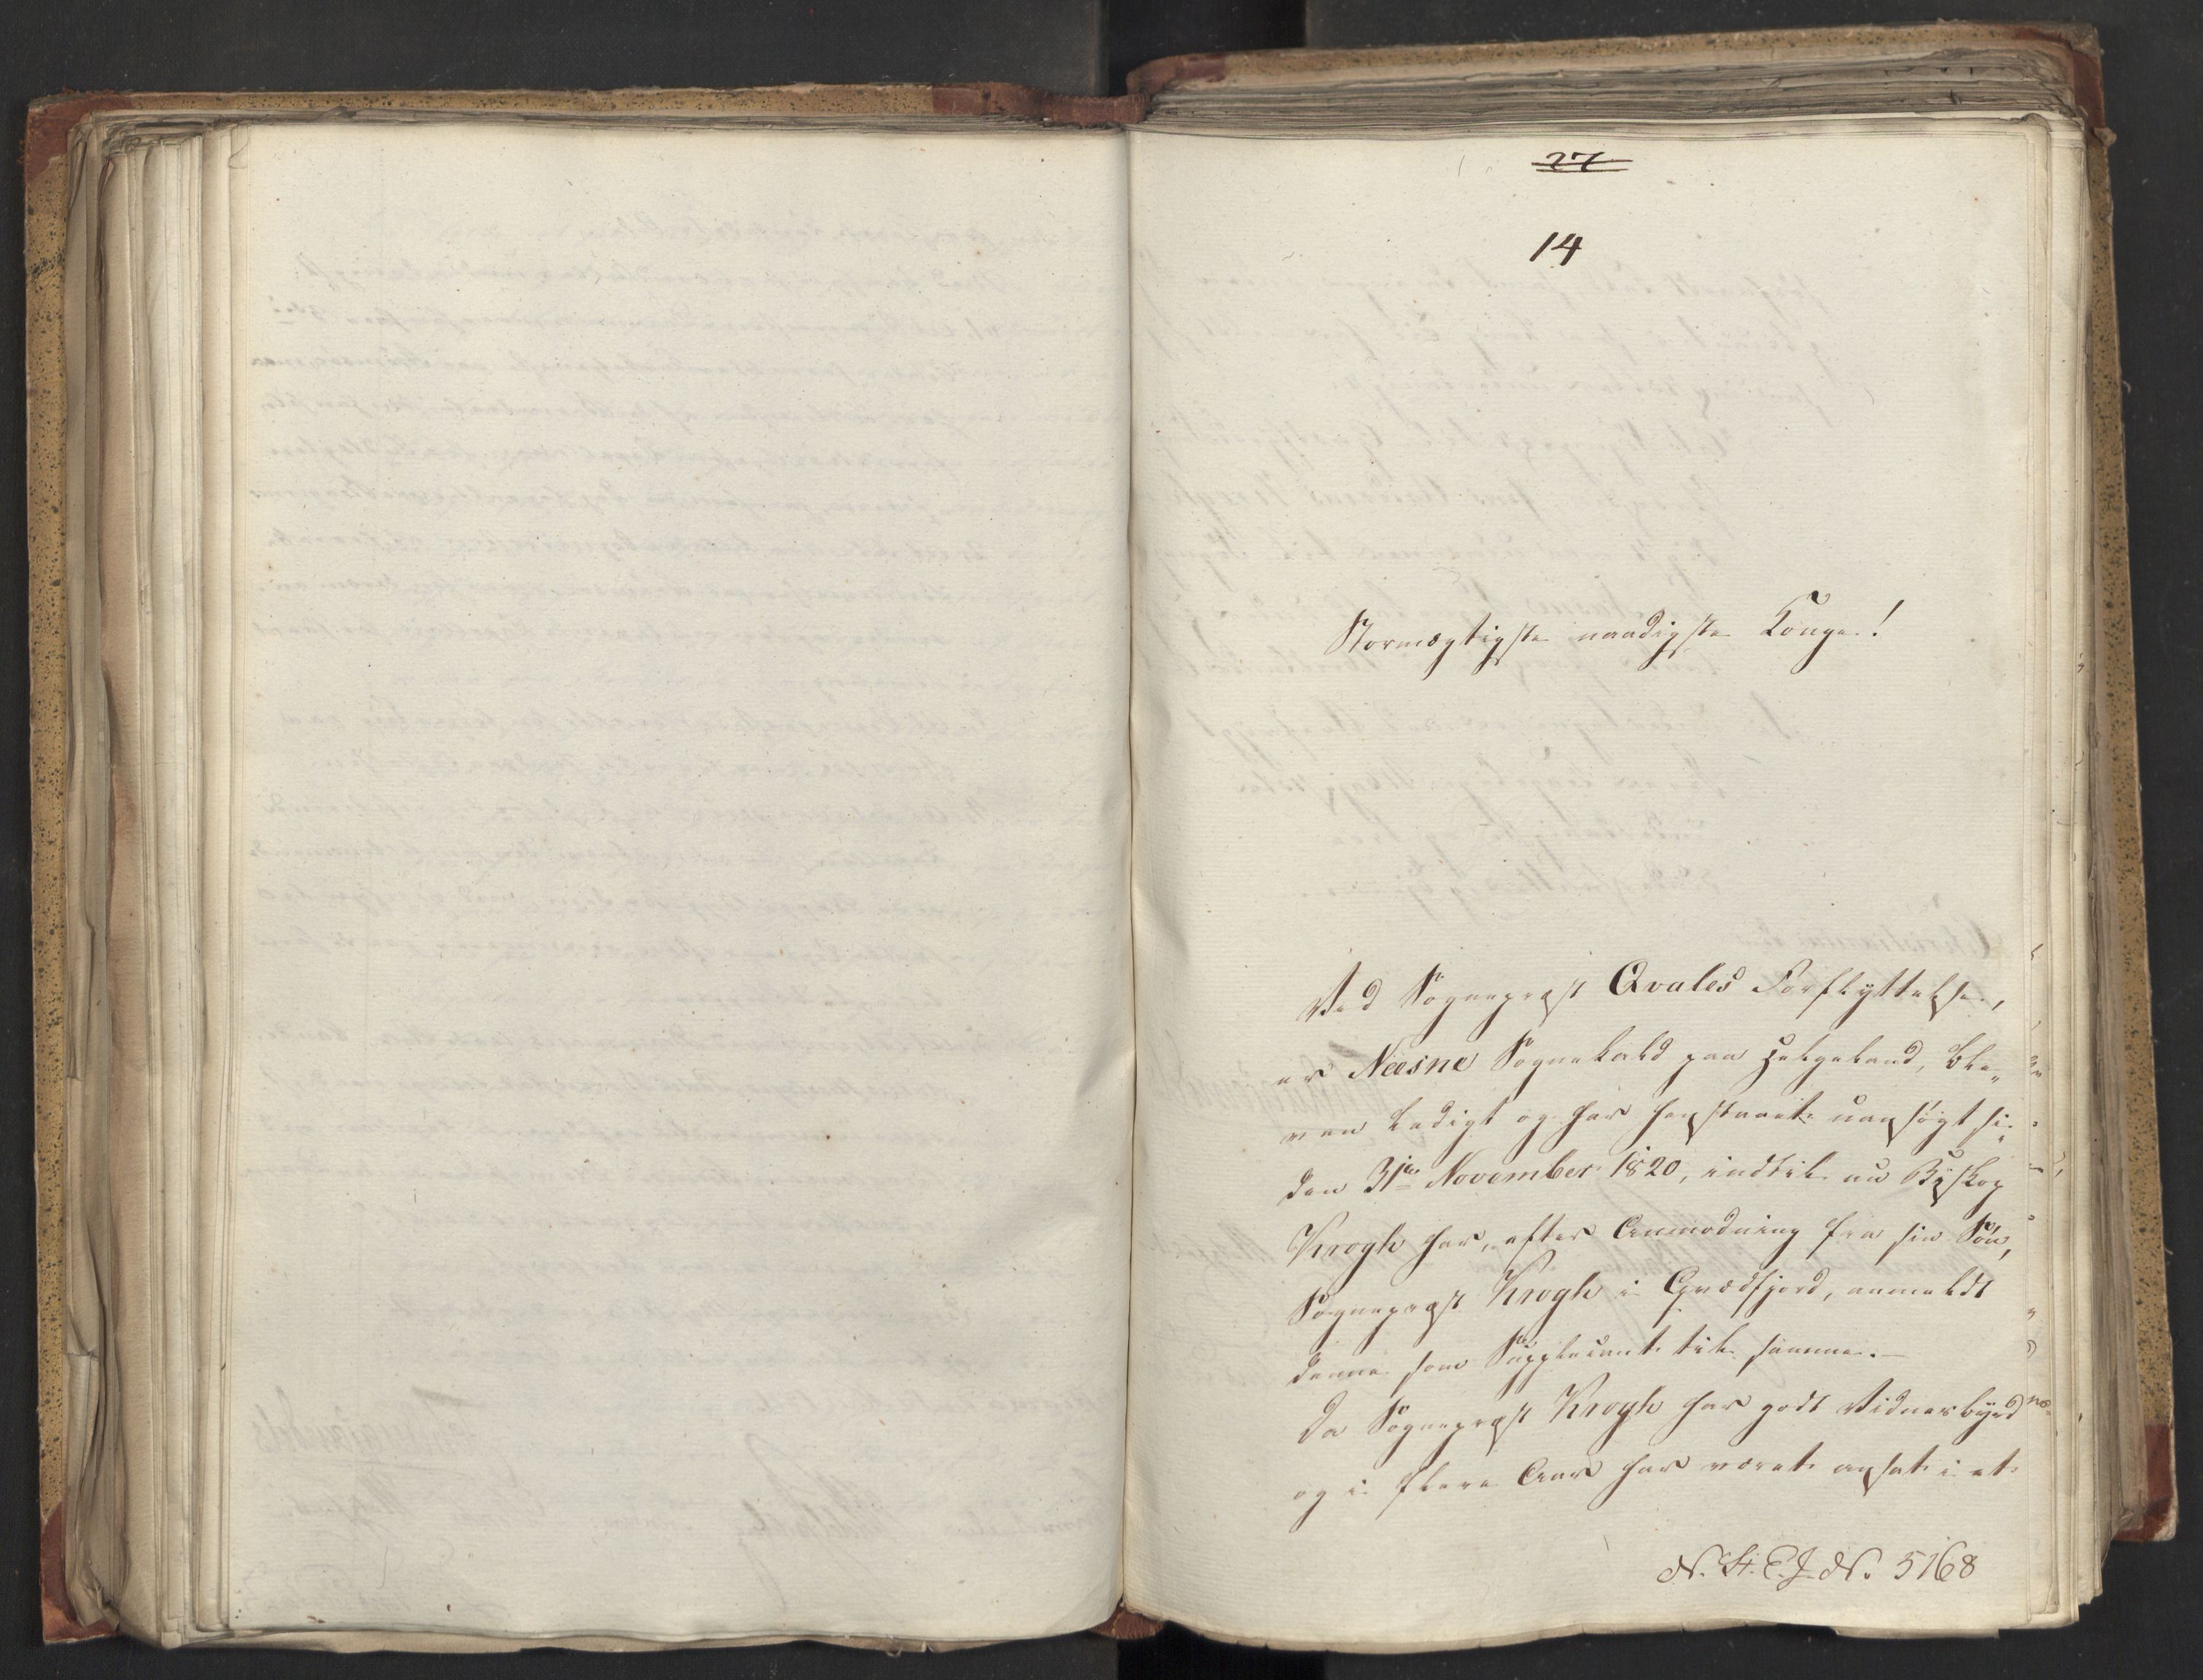 27
14
Stormægtigste naadigste Konge!
Ved Sognepræst Qvales Forflyttelse,
er Næsne Sognekald paa Helgeland, ble-
ven ledigt og har henstaaet uansøgt si-
den 31te November 1820, indtil nu Biskop
Krogh har, efter Anmodning fra sin Søn,
Sognepræst Krogh i Qvædfjord, anmeldt
denne som Suppliicant til samme.—
Da Sognepræst Krogh har godt Vidnesbyrd
og i flere Aar har været ansat i et
N. St. E. J. N. 5168